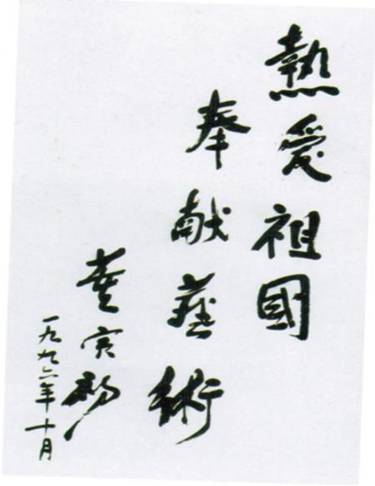 熱愛祖國
奉献藝術
董寅初
一九九六年十月